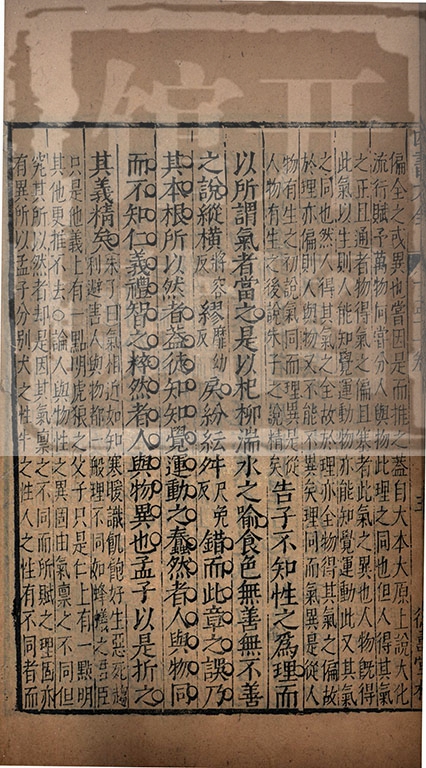 偏全之或異也嘗因是而推之蓋自大本大原上說大化
流行賦予萬物何嘗分人與物此理之同也但人得其氣
之正且通者物得氣之偏且塞者此氣之異也人物旣得
此氣以生則人能知覺運動物亦能知覺運動此又其氣
之同也然人得其氣之全故於理亦全物得其氣之偏故
於理亦偏則人與物又不能不異矣理同而氣異是從人
物有生之初說氣同而理異是從
人物有生之後說朱子之說精矣
告子不知性之為理而
以所謂氣者當之是以杞柳湍水之喻食色無善無不善
之說縱橫將容反繆靡幼反戾紛紜舛尺免反錯而此章之誤乃
其本根所以然者蓋徒知知覺運動之蠢然者人與物同
而不知仁義禮智之粹然者人與物異也孟子以是折之
其義精矣
朱子曰氣相近如知寒暖識飢飽好生惡死趨
利避害人與物都一般理不同如蜂蟻之君臣
只是他義上有一點明虎狼之父子只是仁上有一點明
其他更推不去○論人與物性之異固由氣稟之不同但
究其所以然者却是因其氣稟之不同而所賦之理固亦
有異所以孟子分別犬之性牛之性人之性有不同者而